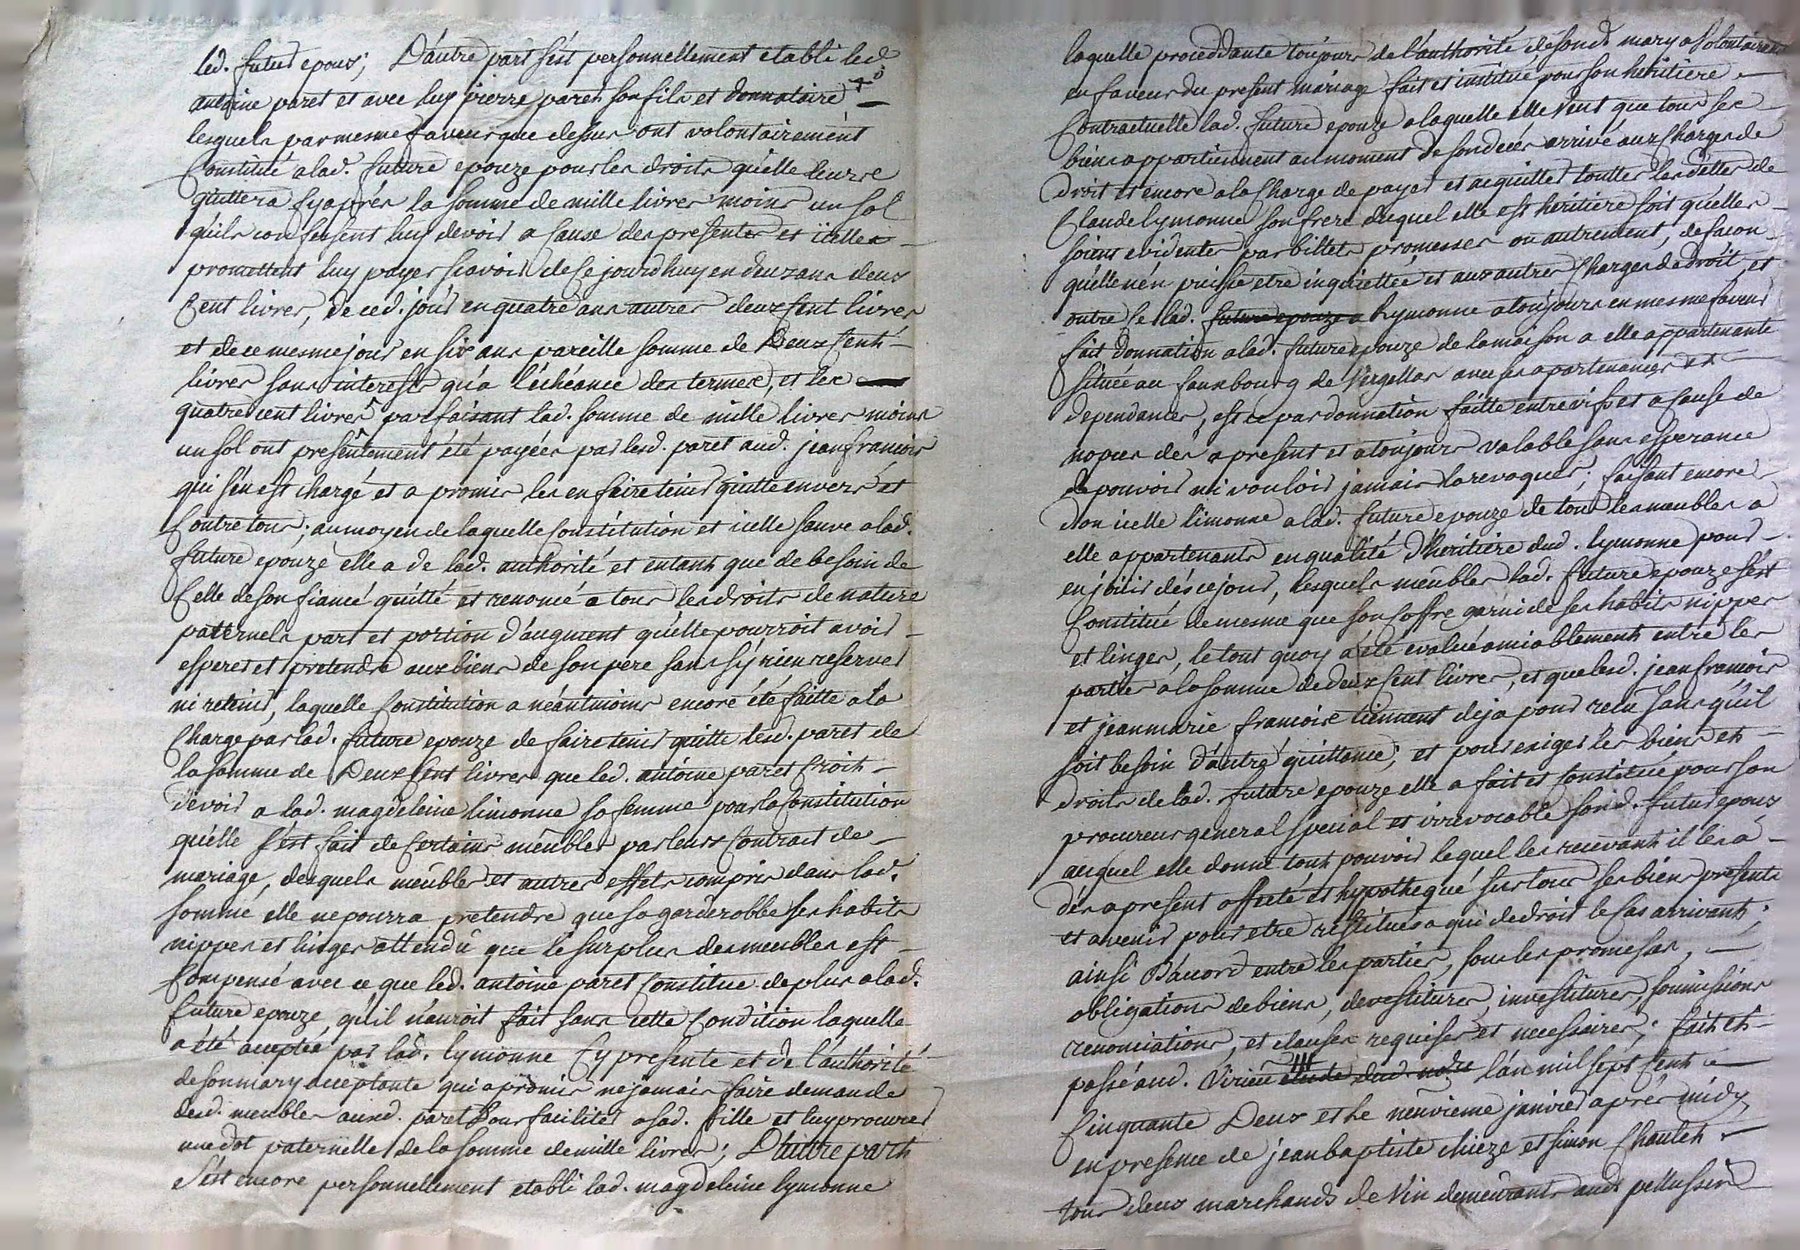 led. futur epoux; D'autre part s'est personnellement etabli led
antoine paret et avec luy pierre paret son fils et donnataire
lesquels par mesme faveur que dessus ont volontairement
Constitué a lad. future epouze pour les droits qu'elle leur
quittera cy aprés la somme de mille livres moins un sol
qu'ils confessent luy devoir a cause des presentes et icelles
promettent luy payer scavoir de ce jourdhuy en deux ans deux
Cent livres, de ced. jour en quatre ans autres deux Cent livres
et de ce mesme jour en six ans pareille somme de Deux Cent
livres sans interests qu'a l'échéance des termes, et les
quatre cent livres parfaisant lad. somme de mille livres moins
un sol ont presentement été payées par lesd. paret aud. jean françois
qui s'en est chargé et a promis les en faire tenir quitte envers et
Contre tous; au moyen de laquelle Constitution et icelle sauve a lad.
future epouze elle a de lad. authorité et entant que de besoin de
Celle de son fiancé quitté et renoncé a tous les droits de nature
paternels part et portion d'augment qu'elle pourroit avoir
esperer et pretendre aux biens de son pere sans sy rien reserver
ni retenir, laquelle Constitution a néantmoins encore été faitte a la
Charge par lad. future epouze de faire tenir quitte lesd. paret de
la somme de Deux Cent livres que led. antoine paret Croit
devoir a lad. magdeleine limonne sa femme pour la Constitution
qu'elle s'est fait de Certains meubles par leur Contrait de
mariage, desquels meubles et autres effets compris dans lad.
somme elle ne pourra pretendre que sa garderobbe ses habits
nippes et linges attendu que le surplus des meubles est
Compensé avec ce que led. antoine paret Constitue de plus a lad.
future epouze qu'il n'auroit fait sans cette Condition laquelle
a été aceptée par lad. lymonne Cy presente et de l'authorité
de son mary aceptante qui a promis ne jamais faire demande
desd. meubles ausd. paret Pour faciliter a sad. fille et luy procurer
une dot paternelle de la somme de mille livres; D'autre part
S'est encore personnellement etabli lad. magdeleine lymonne
laquelle proceddante toujours de l'authorité de sond. mary a Volontairement
en faveur du present mariage fait et institué pour son heritiere
Contractuelle lad. future epouze a laquelle elle veut que tous ses
biens appartiennent au moment de son decés arrivé aux Charges de
droit et encore a la Charge de payer et acquitter touttes les dettes de
Claude lymonne son frere duquel elle est heritiere soit qu'elles
soient evidentes par billets promesses ou autrement, de facon
qu'elle n'en puisse etre inquiettée et aux autres Charges de droit, et
outre ce lad. future epouze a lymonne a toujours en mesme faveur
fait donnation a lad. future epouze de la maison a elle appartenante
située au fauxbourg de Virgellas avec ses apartenances et
dependances, est ce par donnation faitte entre vifs et a cause de
nopces dés a present et a toujours valable sans esperance
de pouvoir ni vouloir jamais la revoquer, faisant encore
don icelle limonne a lad. future epouze de tous les meubles a
elle appartenants en qualité d'heritiere dud. lymonne pour
en jouir dés ce jour, lesquels meubles lad. future epouze s'est
Constitué de mesme que son Coffre garni de ses habits nippes
et linges, le tout quoy a été evalué amiablement entre les
parties a la somme de deux Cent livres, et que lesd. jean françois
et jeanmarie francoise tiennent deja pour recu sans qu'il
soit besoin d'autre quittance; et pour exiger les biens et
droits de lad. future epouze elle a fait et Constitué pour son
procureur general special et irrevocable sond. futur epoux
auquel elle donne tout pouvoir lequel les recevant il les a
dés a present affecté et hypothequé sur tous ses biens presents
et avenir pour etre restitués a qui de droit le Cas arrivant;
ainsi D'acord entre les parties, sous les promesses,
obligations de biens, devestitures, investitures, soumissions
renonciations, et clauses requises et necessaires; fait et
passé aud. Virieu etude dud. no.re l'an mil sept Cent
Cinquante Deux et le neuvieme janvier aprés midy,
en presence de jean baptiste chieze et simon Chaulet
tous deux marchands de Vin demeurants aud. pellussin